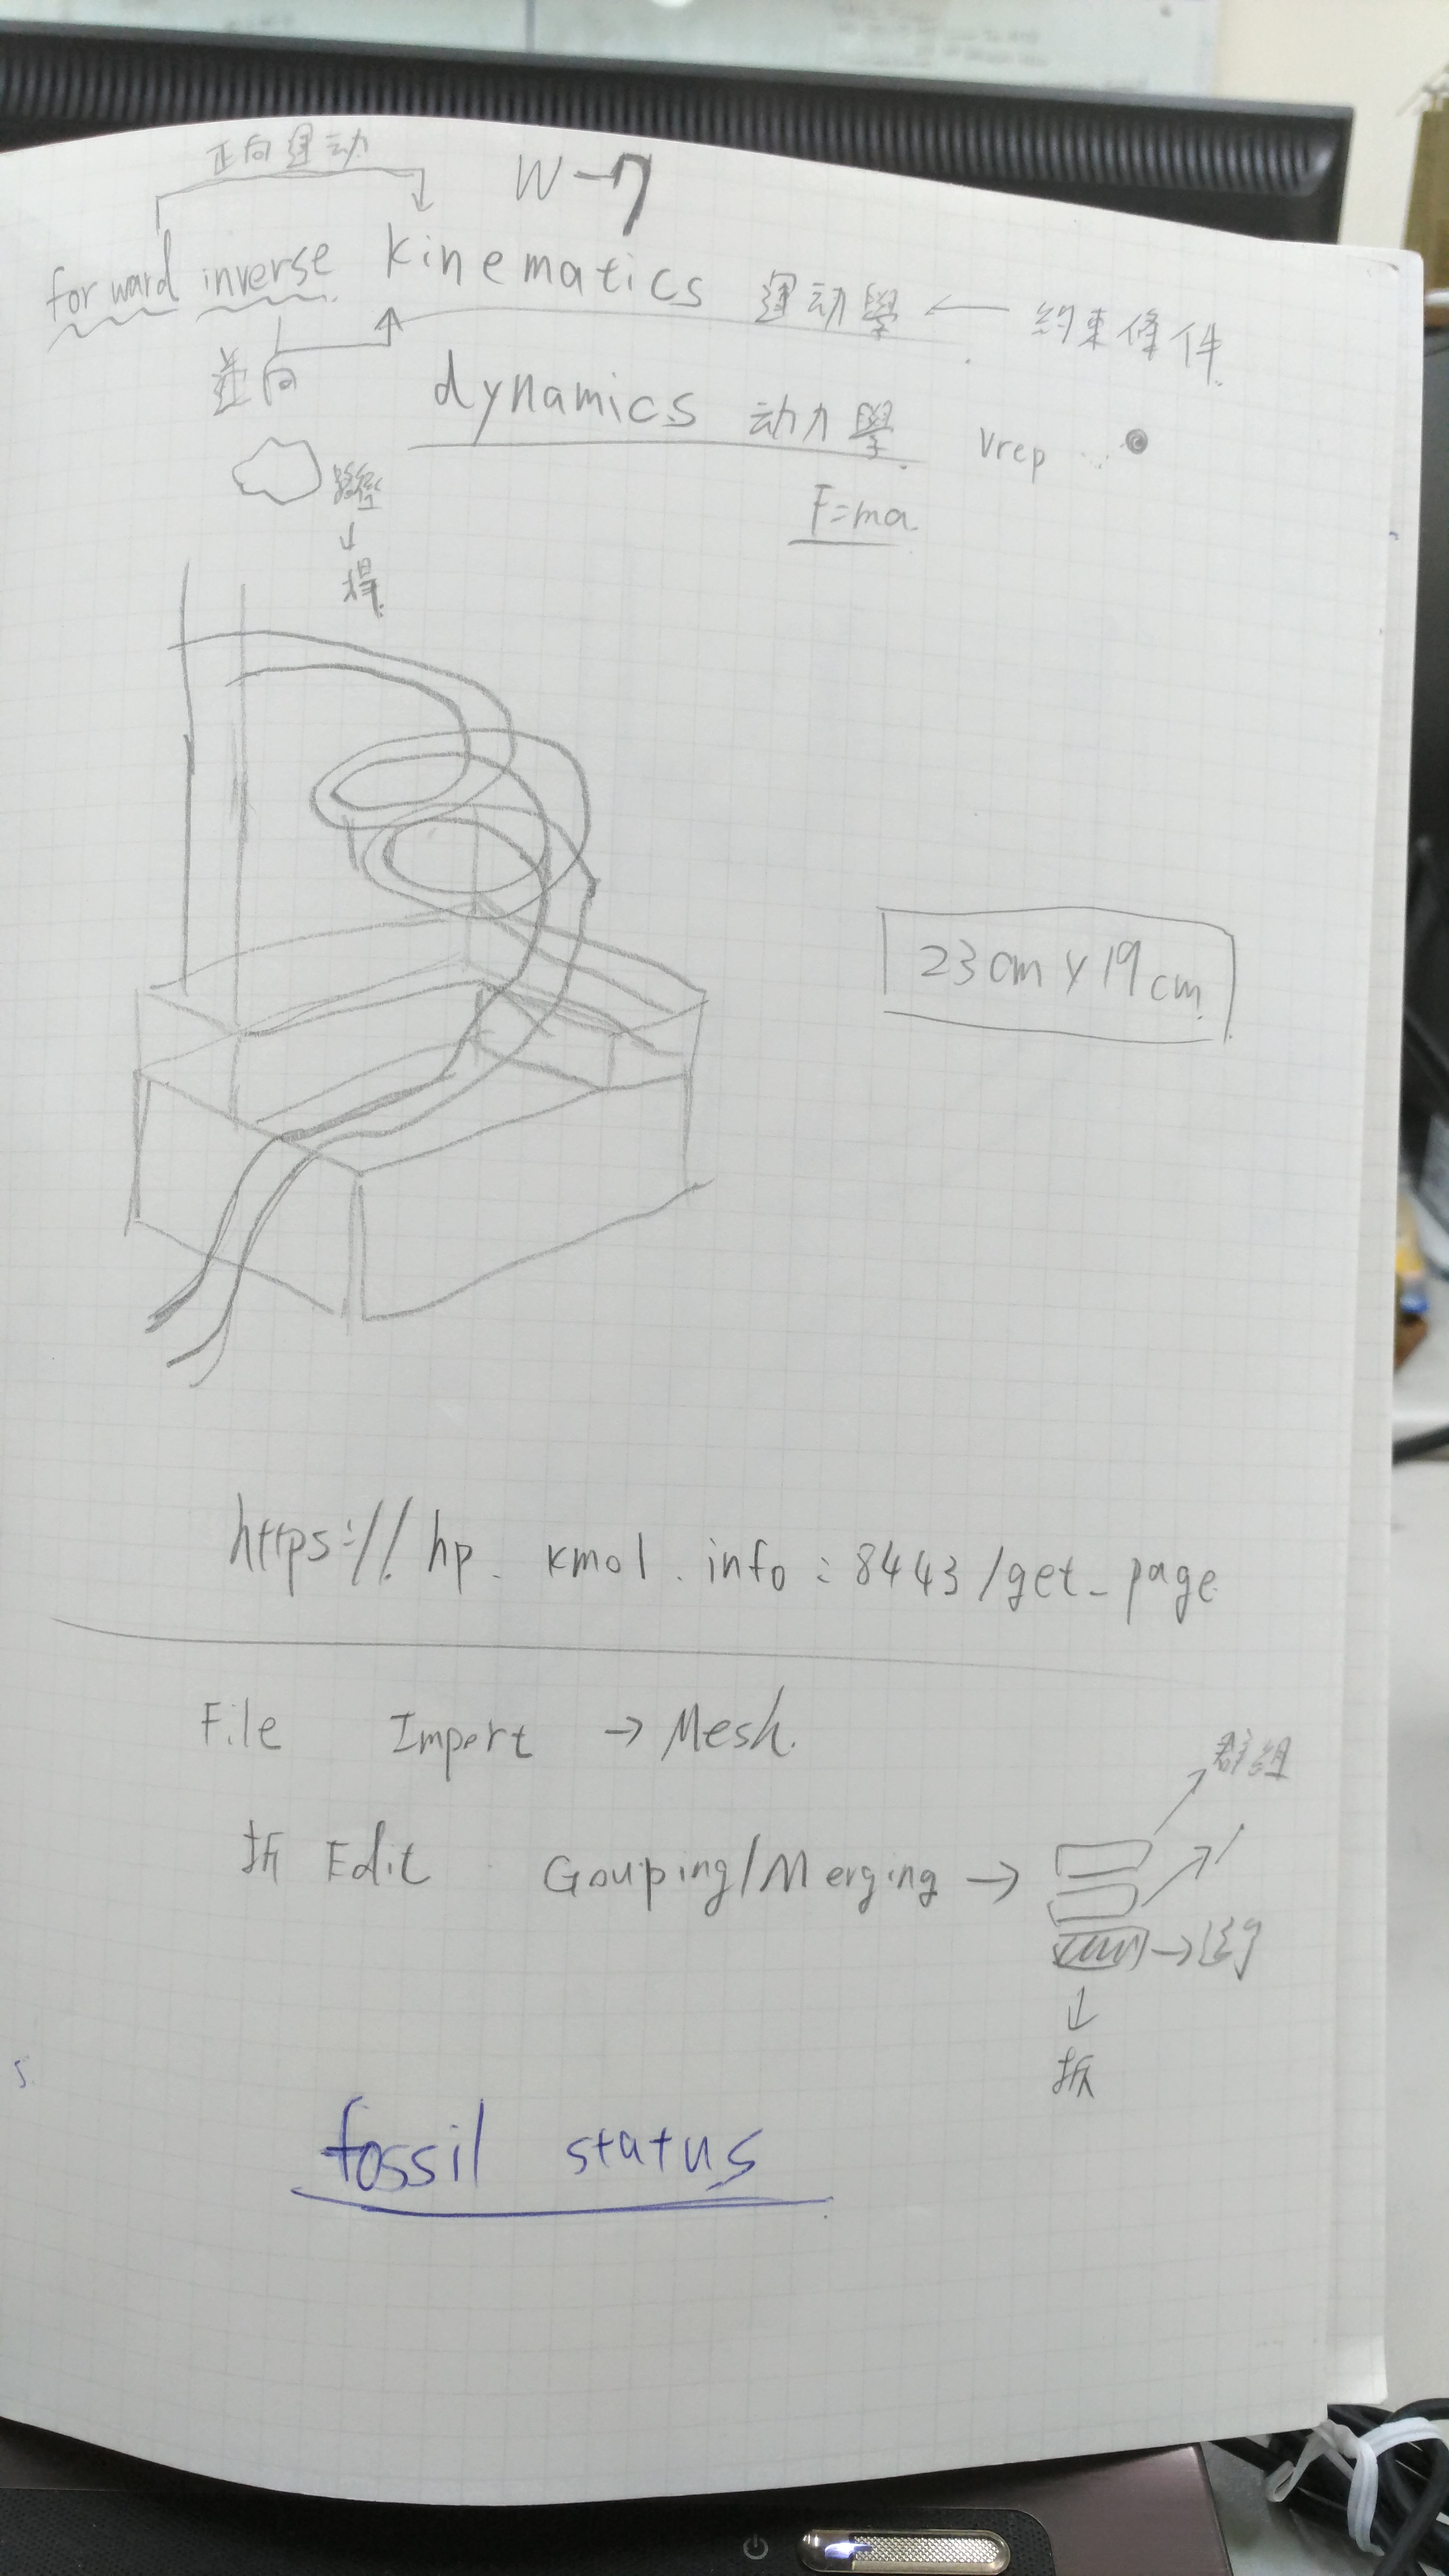 正向運动
W-7
forward inverse Kinematics 運动學 ← 約束條件
dynamics 动力學 Vrep
路徑
↓
得
F=ma
23cm x 19cm
https://hp.kmol.info:8443/get_page
File Import → Mesh.
群組
拆 Edit Gouping/Merging →
↓
拆
fossil status